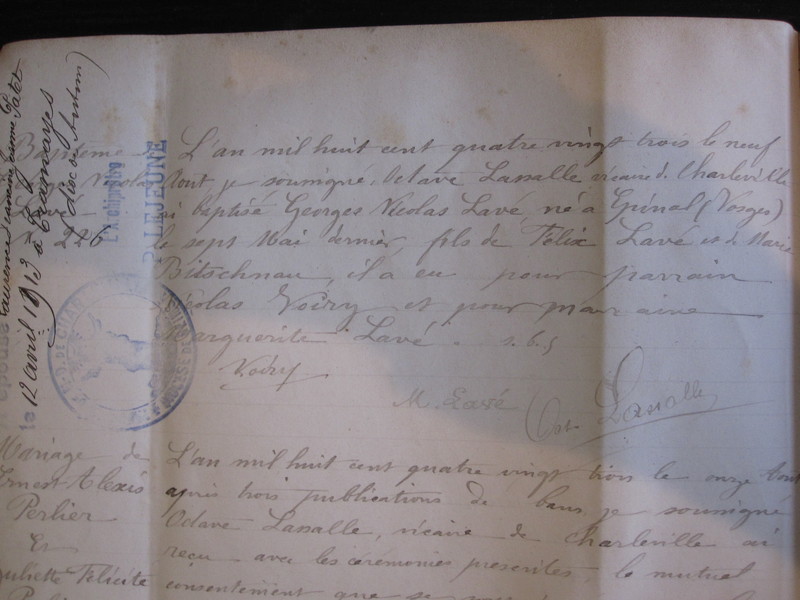 Baptême
L'an mil huit cent quatre vingt trois le neuf
Aout, je soussigné, Octave Lassalle vicaire d. Charleville
ai baptisé Georges Nicolas Lavé, né à Epinal (Vosges)
le sept Mai dernier, fils de Félix Lavé et de Marie
Bitschnau, il a eu pour parrain
Nicolas Voiry et pour marraine
Marguerite Lavé. s. 6. 5
Voiry
M. Lavé
Oct. Lassalle
226
P. LEJEUNE
a épousé
le 12 avril 1913 à
Mariage de
Ernest Alexis
Perlier
Et
Juliette Félicité
L'an mil huit cent quatre vingt trois le onze Aout
après trois publications de bans, je soussigné
Octave Lassalle, vicaire de Charleville ai
reçu avec les cérémonies prescrites, le mutuel
consentement que se